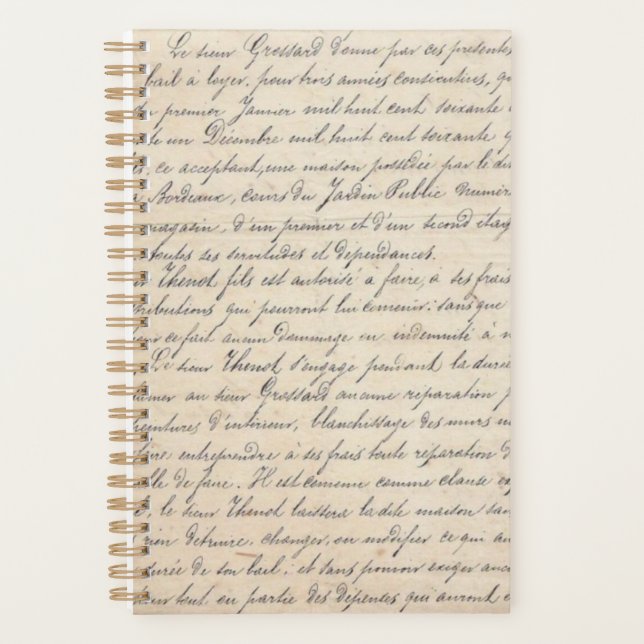 Le sieur Grossard donne par ces presentes
bail à loyer, pour trois années consécutives, qu
premier Janvier mil huit cent soixante
te un Décembre mil huit cent soixante q
ce acceptant, une maison possédée par le di
à Bordeaux, cours du Jardin Public Numér
magasin, d'un premier et d'un second étag
toutes ses servitudes et dépendances.
Thenot fils est autorisé à faire, à ses frais
tributions qui pourront lui convenir; sans que
ce fait aucun dommage ou indemnité à
Le sieur Thenot s'engage pendant la durée
au sieur Grossard aucune réparation p
peintures d'intérieur, blanchissage des murs
faire entreprendre à ses frais toute réparation d
de faire. Il est convenu comme clause ex
le sieur Thenot laissera la dite maison san
rien détruire, changer, ou modifier ce qui au
durée de son bail; et sans pouvoir exiger aucu
tout ou partie des dépenses qui auront